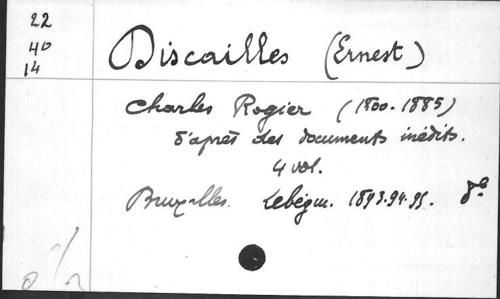 22
40
14
Discailles (Ernest)
Charles Rogier (1800-1885)
d'après des documents inédits.
4 vol.
Bruxelles. Lebègue. 1893.94.95. 8°